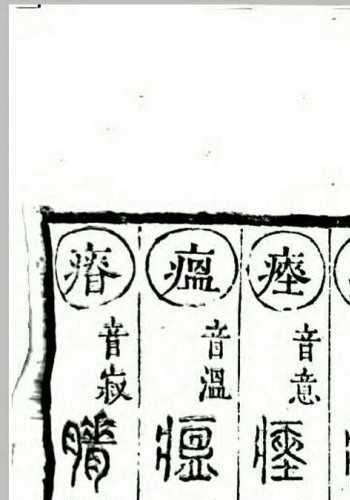 瘞
音意
瘟
音溫
瘠
音寂